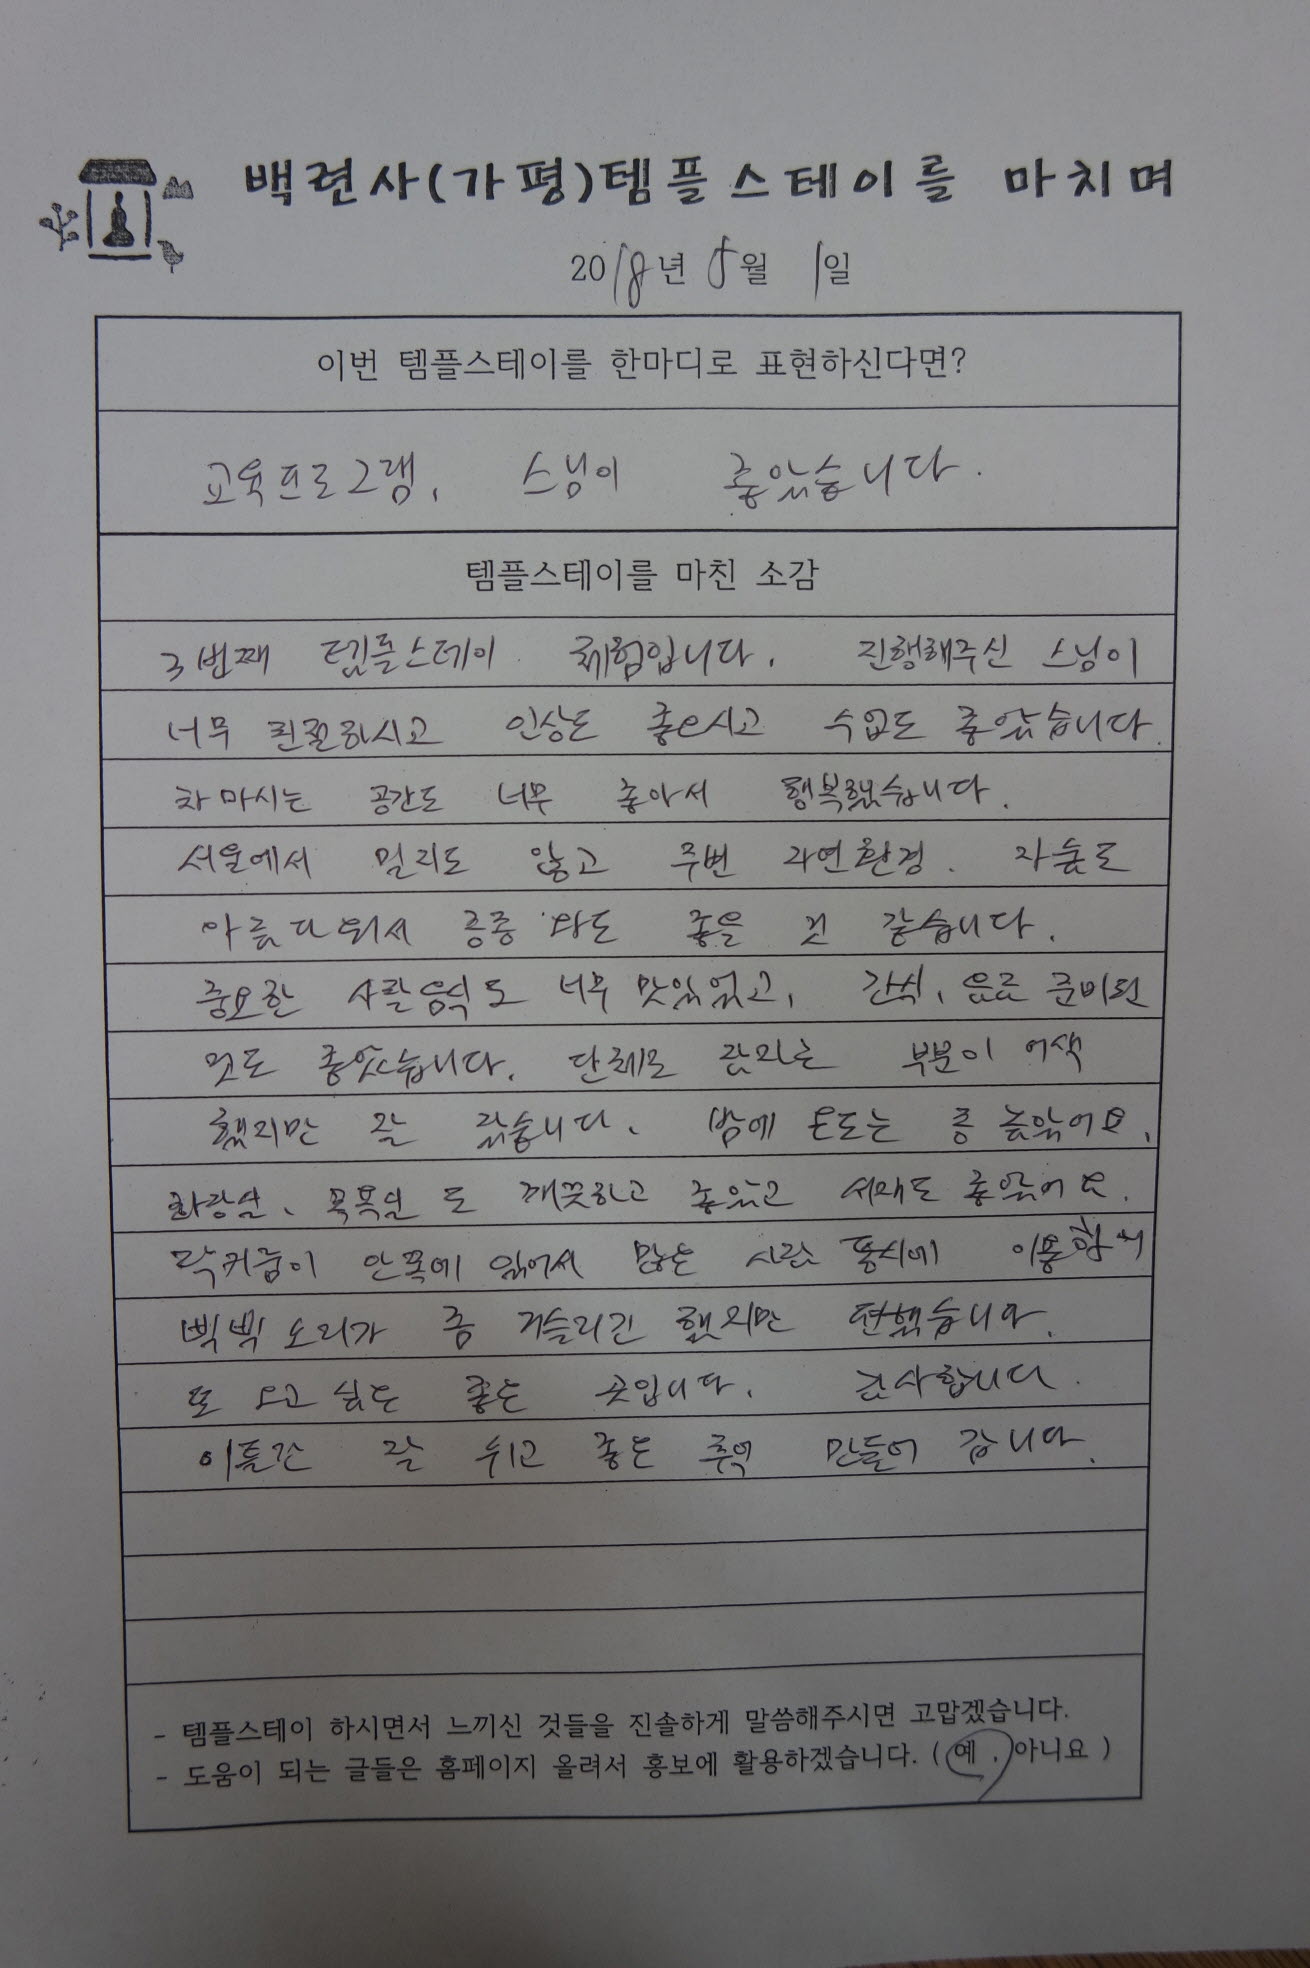 백련사(가평)템플스테이를 마치며
2018년 5월 1일
이번 템플스테이를 한마디로 표현하신다면?
교육프로그램, 스님이 좋았습니다.
템플스테이를 마친 소감
3번째 템플스테이 체험입니다. 진행해주신 스님이
너무 친절하시고 인상도 좋으시고 수업도 좋았습니다.
차 마시는 공간도 너무 좋아서 행복했습니다.
서울에서 멀지도 않고 주변 자연환경.
아름다워서 종종 와도 좋을 것 같습니다.
중요한 사찰음식도 너무 맛있었고, 간식, 음료 준비된
것도 좋았습니다. 단체로 잠자는 부분이 어색
했지만 잘 잤습니다. 밤에 온도는 좀 높았어요.
화장실, 목욕실도 깨끗하고 좋았고 좋았어요.
안쪽에 있어서 많은 사람 동시에 이용할 때
삑삑 소리가 좀 거슬리긴 했지만 편했습니다.
또 오고 싶은 좋은 곳입니다. 감사합니다.
이틀간 잘 쉬고 좋은 추억 만들어 갑니다.
- 템플스테이 하시면서 느끼신 것들을 진솔하게 말씀해주시면 고맙겠습니다.
- 도움이 되는 글들은 홈페이지 올려서 홍보에 활용하겠습니다. ( 예 , 아니요 )